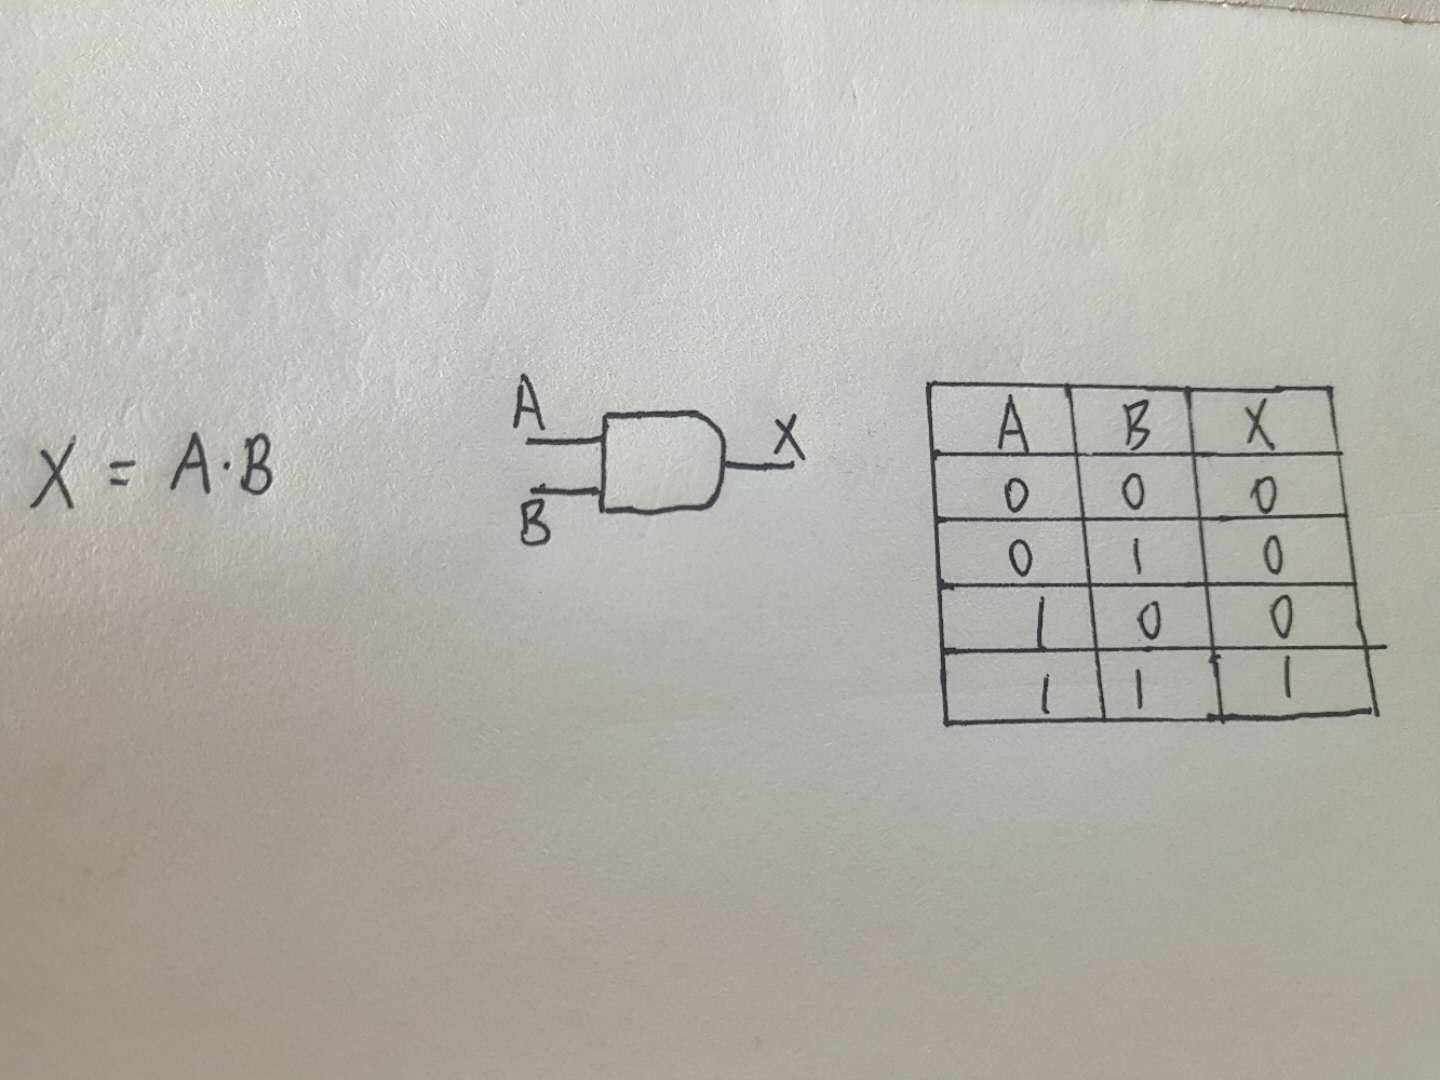 X = A·B
A
B
X
A B X
0 0 0
0 1 0
1 0 0
1 1 1